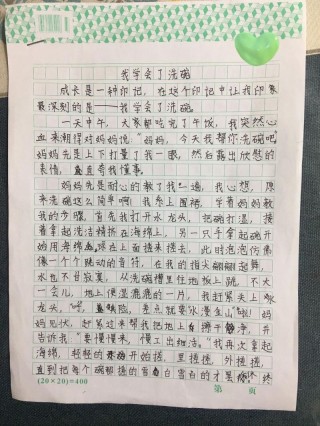 我学会了洗碗
成长是一种印记，在这个印记中让我印象
最深刻的是——我学会了洗碗。
一天中午，大家都吃完了午饭，我突然心
血来潮得对妈妈说“妈妈，今天我帮你洗碗吧
妈妈先是上下打量了我一眼，然后露出欣慰的
表情，直夸我懂事。
妈妈先是耐心的教了我一遍，我心想，原
来洗碗这么简单啊！我系上围裙，学着妈妈教
我的步骤，首先我打开水龙头，把碗打湿，接
着拿起洗洁精挤在海绵上，另一只手拿起碗开
始用海绵球在上面搓来搓去，此时泡泡仿佛
像一个个跳动的音符，在我的指尖翩翩起舞，
水也不甘寂寞，从洗碗槽里往地板上跳，不大
一会儿，地上便湿漉漉的一片，我赶紧关上水
龙头，“呼，真险，差点就要‘水漫金山’啦！妈
妈见状，赶紧过来帮我把地上擦干净，并
告诉我“要慢慢来，慢工出细活。”我再次拿起
海绵，轻轻的开始搓，里搓搓，外搓搓，
直到把每个碗都搓的雪白雪白的才罢休，终
(20×20)=400
第 页